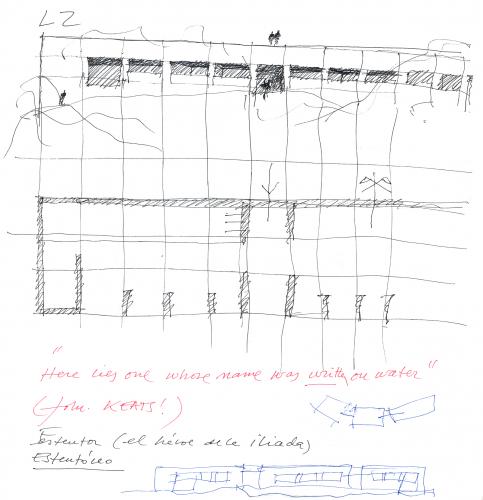 LZ
"Here lies one whose name was written on water"
(John. KEATS!)
Estentor (el héroe de la iliada)
Estentóreo